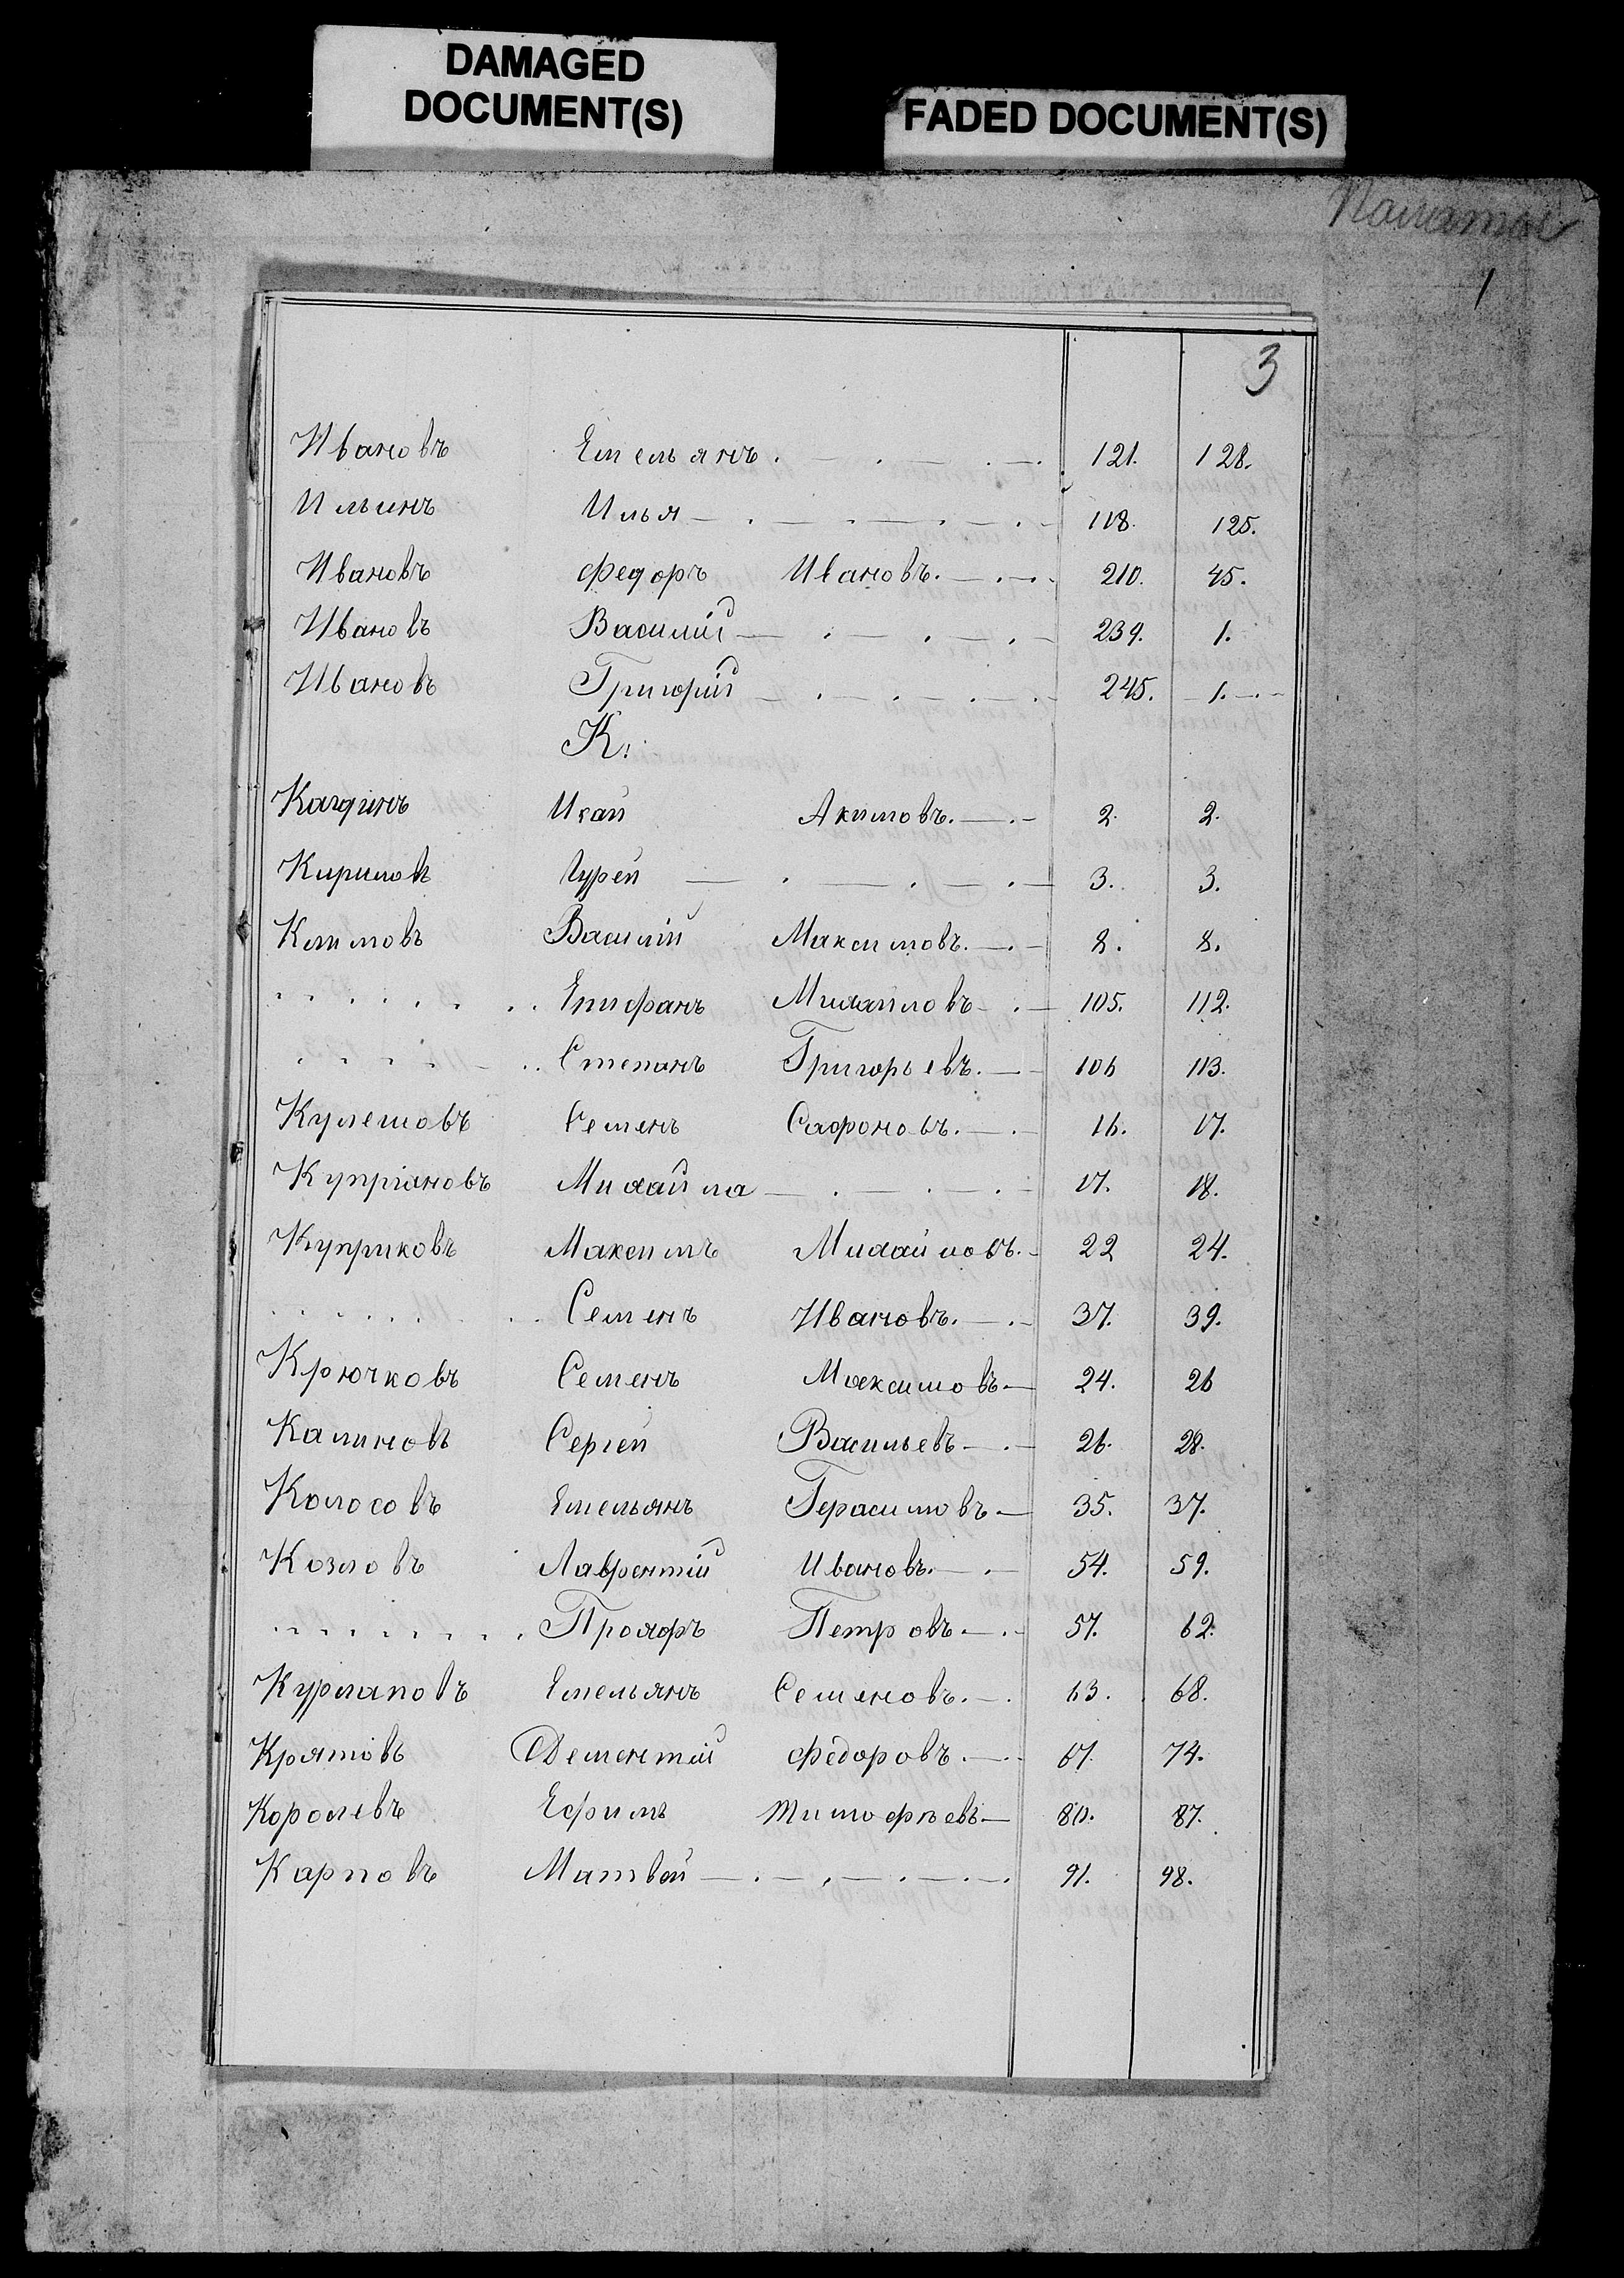 DAMAGED
DOCUMENT(S)
FADED DOCUMENT(S)
1
3
Ивановъ Емельянъ 121. 128.
Ильинъ Илья 118. 125.
Ивановъ Федоръ Ивановъ. 210. 45.
Ивановъ Василій 239. 1.
Ивановъ Григорій 245. 1.
К.
Исай Акимовъ. 2. 2.
Кириловъ Гурей 3. 3.
Климовъ Василій Максимовъ. 8. 8.
Епифанъ Михайловъ 105. 112.
Степанъ Григорьевъ. 106 113.
Кулешовъ Семенъ Сафоновъ. 16. 17.
Купріановъ Михайла 17. 18.
Куприковъ Максимъ Михайловъ. 22 24.
Семенъ Ивановъ. 37. 39.
Крючковъ Семенъ Максимовъ 24. 26
Калиновъ Сергей Васильевъ 26. 28.
Колосовъ Емельянъ Герасимовъ 35. 37.
Козловъ Лаврентій Ивановъ. 54. 59.
Прохоръ Петровъ 57. 62.
Курлаповъ Емельянъ Семеновъ. 63. 68.
Дементій Федоровъ. 67. 74.
Королевъ Ефимъ Тимофѣевъ 80. 87.
Карповъ Матвей 91. 98.